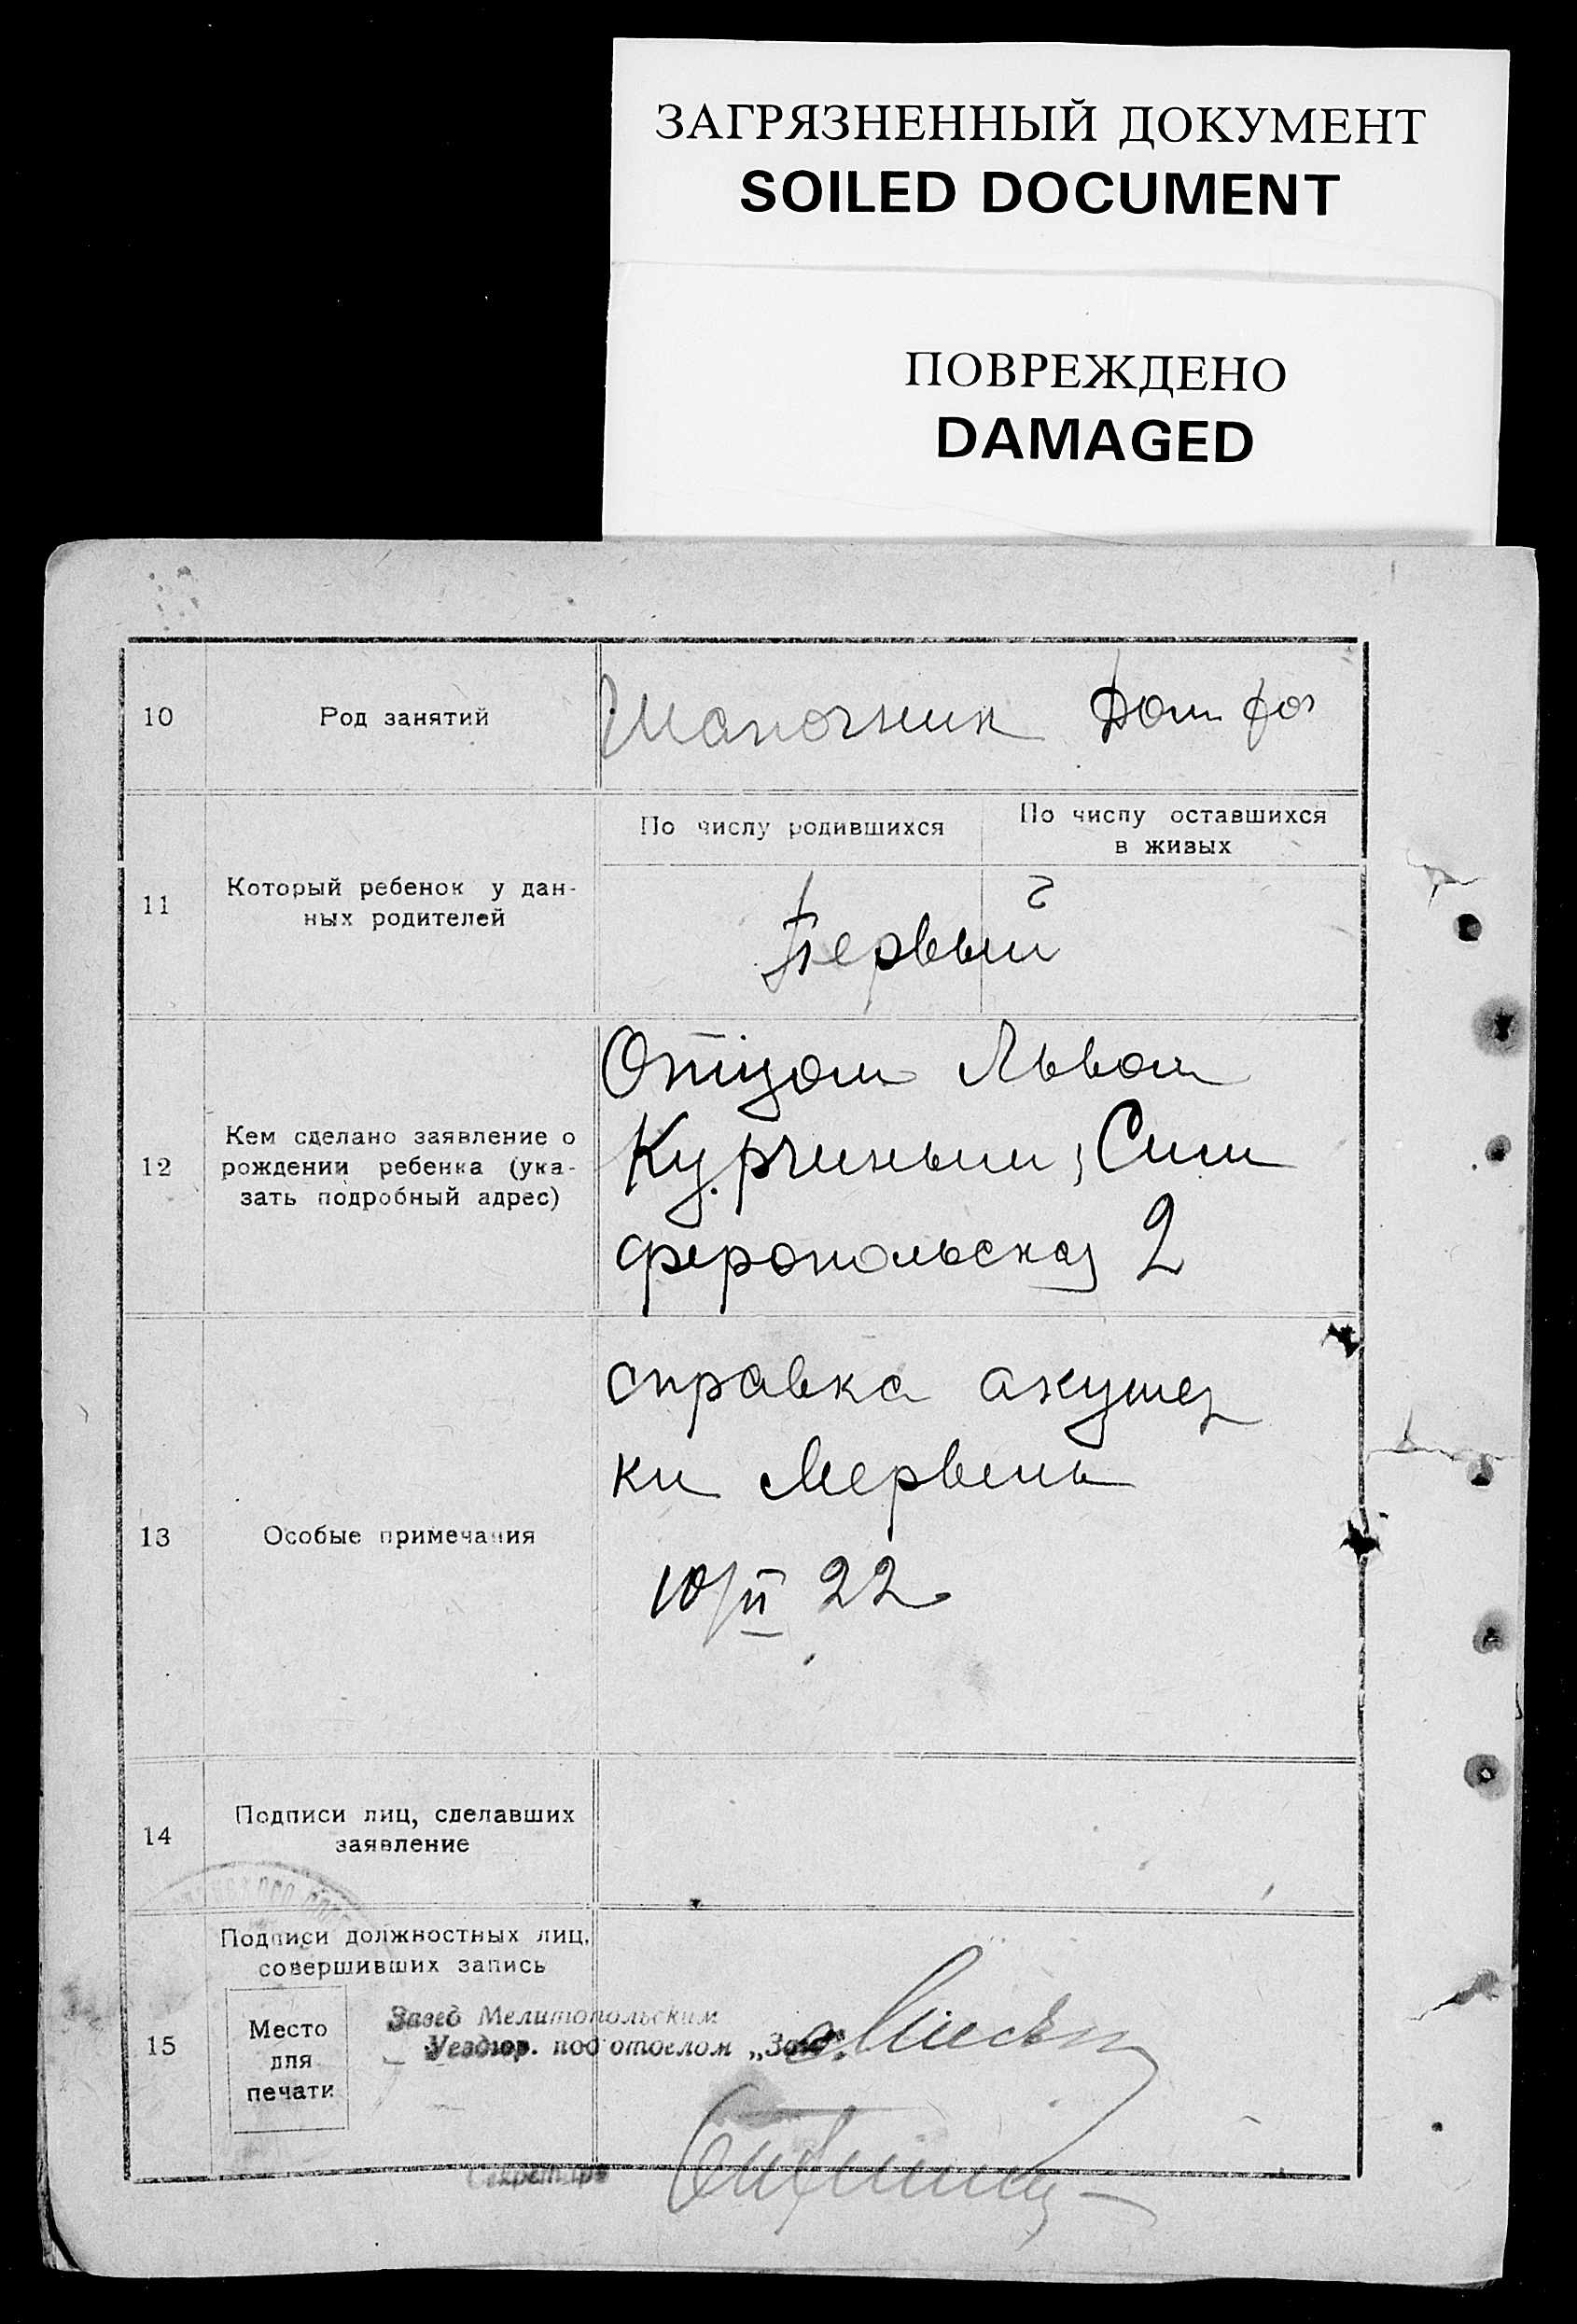 ЗАГРЯЗНЕННЫЙ ДОКУМЕНТ
SOILED DOCUMENT
ПОВРЕЖДЕНО
DAMAGED
10
Род занятий
Шапочник Дом
11
Который ребенок у дан-
ных родителей
По числу родившихся
По числу оставшихся
в живых
Первый
12
Кем сделано заявление о
рождении ребенка (ука-
зать подробный адрес)
Отцом Львом
Курчиным, Сим
феропольская 2
13
Особые примечания
справка акушер
ки
10/II 22
14
Подписи лиц, сделавших
заявление
15
Подписи должностных лиц,
совершивших запись
Место
для
печати
Завед Мелитопольским
Уездюр. подотделом „Загс“
Секретарь